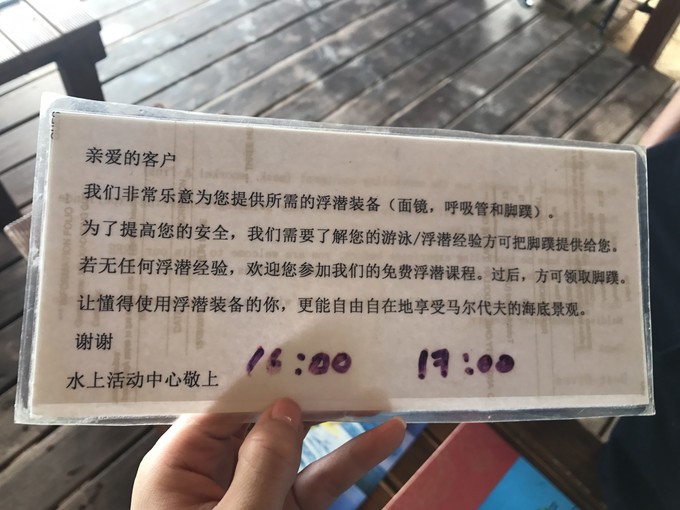 亲爱的客户
我们非常乐意为您提供所需的浮潜装备（面镜，呼吸管和脚蹼）。
为了提高您的安全，我们需要了解您的游泳/浮潜经验方可把脚蹼提供给您。
若无任何浮潜经验，欢迎您参加我们的免费浮潜课程。过后，方可领取脚蹼。
让懂得使用浮潜装备的你，更能自由自在地享受马尔代夫的海底景观。
谢谢
16:00 17:00
水上活动中心敬上